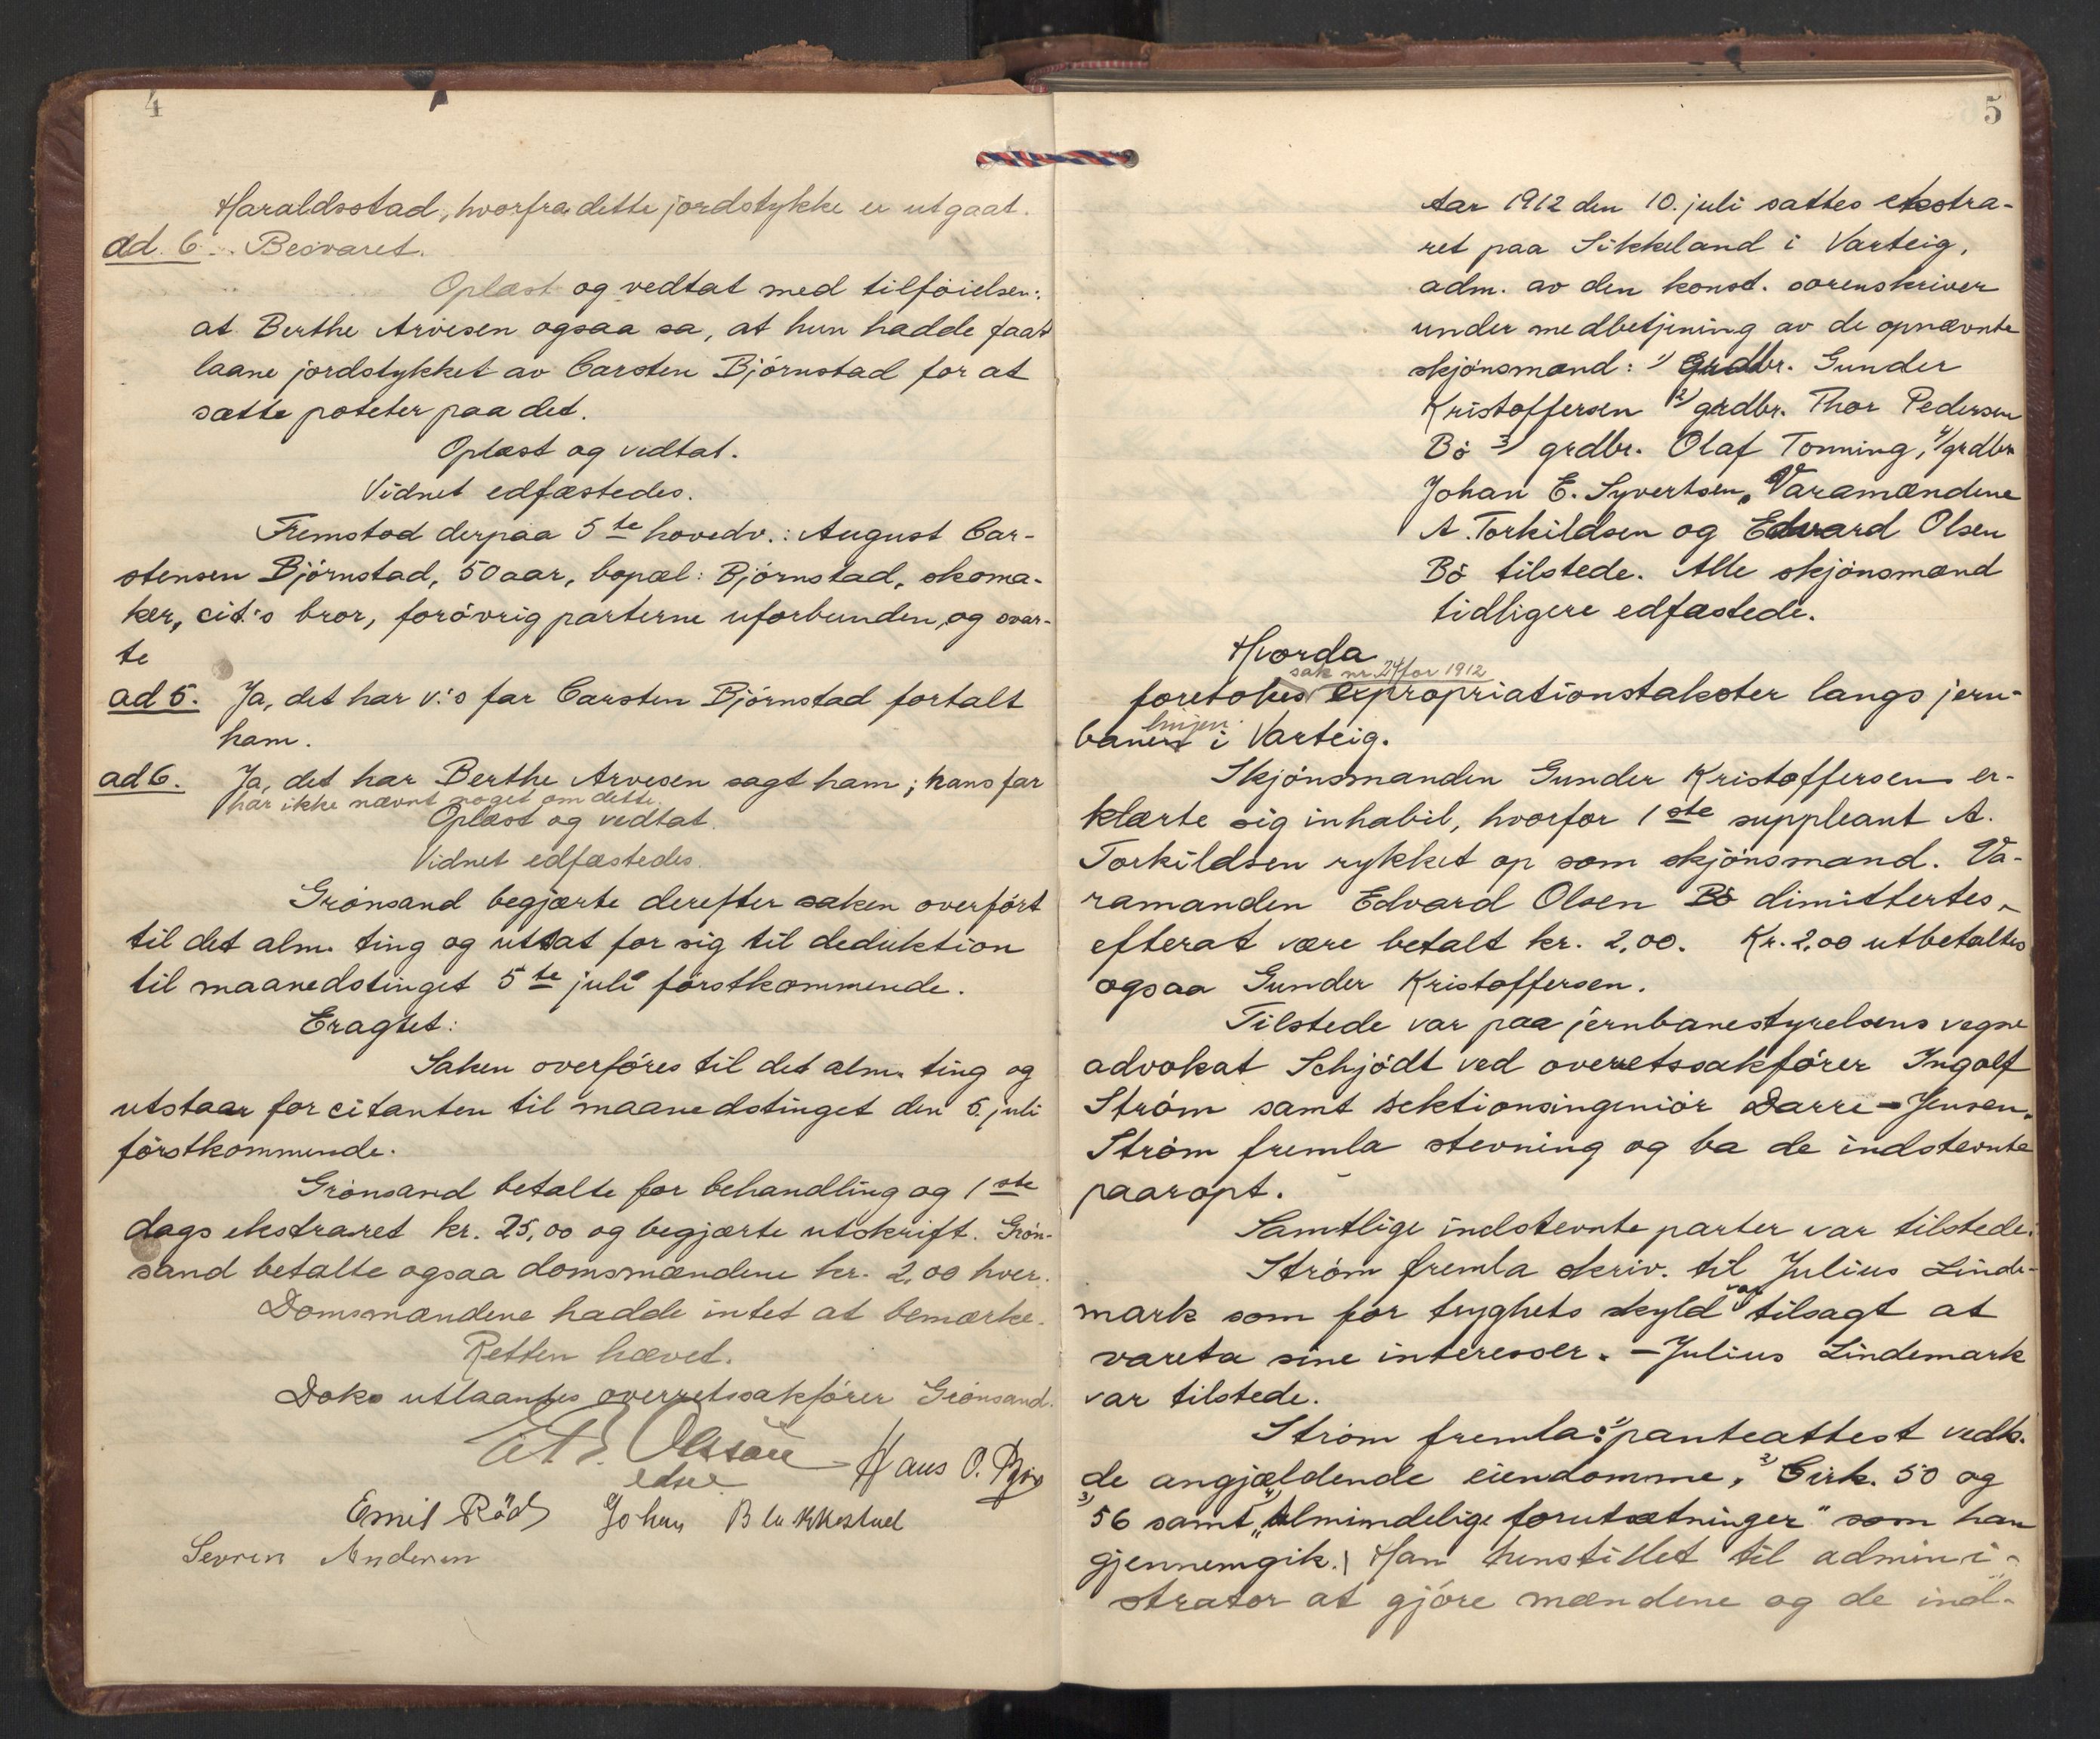 4
Haraldsstad, hvorfra dette jordstykke er utgaat.
ad. 6. Besvaret.
Oplæst og vedtat med tilføielsen:
at Berthe Arvesen ogsaa sa, at hun hadde faat
laane jordstykket av Carsten Bjørnstad for at
sætte poteter paa det.
Oplæst og vedtat.
Vidnet edfæstedes.
Fremstod derpaa 5te hovedv.: August Car-
stensen Bjørnstad, 50 aar, bopæl: Bjørnstad, skoma-
ker, cit.'s bror, forøvrig parterne uforbunden, og svar-
te
ad 5. Ja, det har v.'s far Carsten Bjørnstad fortalt
ham.
ad 6. Ja, det har Berthe Arvesen sagt ham; hans far
har ikke nævnt noget om dette.
Oplæst og vedtat.
Vidnet edfæstedes.
Grønsand begjærte derefter saken overført
til det alm. ting og utsat for sig til deduktion
til maanedstinget 5te juli førstkommende.
Eragtet:
Saken overføres til det alm. ting og
utstaar for citanten til maanedstinget den 5. juli
førstkommende.
Grønsand betalte for behandling og 1ste
dags ekstraret kr. 25,00 og begjærte utskrift. Grøn-
sand betalte ogsaa domsmændene kr. 2,00 hver.
Domsmændene hadde intet at bemærke.
Retten hævet.
Doks utlaantes overretssakfører Grønsand.
Olsson
Hans O.
Emil Röd Johan
Andersen
5
Aar 1912 den 10. juli sattes ekstra-
ret paa Sikkeland i Varteig,
adm. av den konst. sorenskriver
under medbetjening av de opnævnte
skjønsmænd: 1) Grdbr. Gunder
Kristoffersen 2) grdbr. Thor Pedersen
Bø 3) grdbr. Olaf Tonning, 4) grdbr
Johan E. Syvertsen. Varamændene
A. Torkildsen og Edvard Olsen
Bø tilstede. Alle skjønsmænd
tidligere edfæstede.
Hvorda
sak nr. 24 for 1912
foretokes expropriationstakster langs jern-
linjen
banen i Varteig.
Skjønsmanden Gunder Kristoffersen er-
klærte sig inhabil, hvorfor 1ste suppleant A.
Torkildsen rykket op som skjønsmand. Va-
ramanden Edvard Olsen Bø dimittertes,
efterat være betalt kr. 2,00. Kr. 2,00 utbetaltes
ogsaa Gunder Kristoffersen.
Tilstede var paa jernbanestyrelsens vegne
advokat Schjødt ved overretssakfører Ingolf
Strøm samt sektionsingeniør Darre-Jensen.
Strøm fremla stevning og ba de indstevnte
paaropt.
Samtlige indstevnte parter var tilstede.
Strøm fremla skriv. til Julius Linde-
mark som for tryghets skyld var tilsagt at
vareta sine interesser. - Julius Lindemark
var tilstede.
Strøm fremla: 1) panteattest vedk.
de angjældende eiendomme, 2) Cirk. 50 og
3) 56 samt 4) „Almindelige forutsætninger" som han
gjennemgik. Han henstillet til admini-
strator at gjøre mændene og de ind-